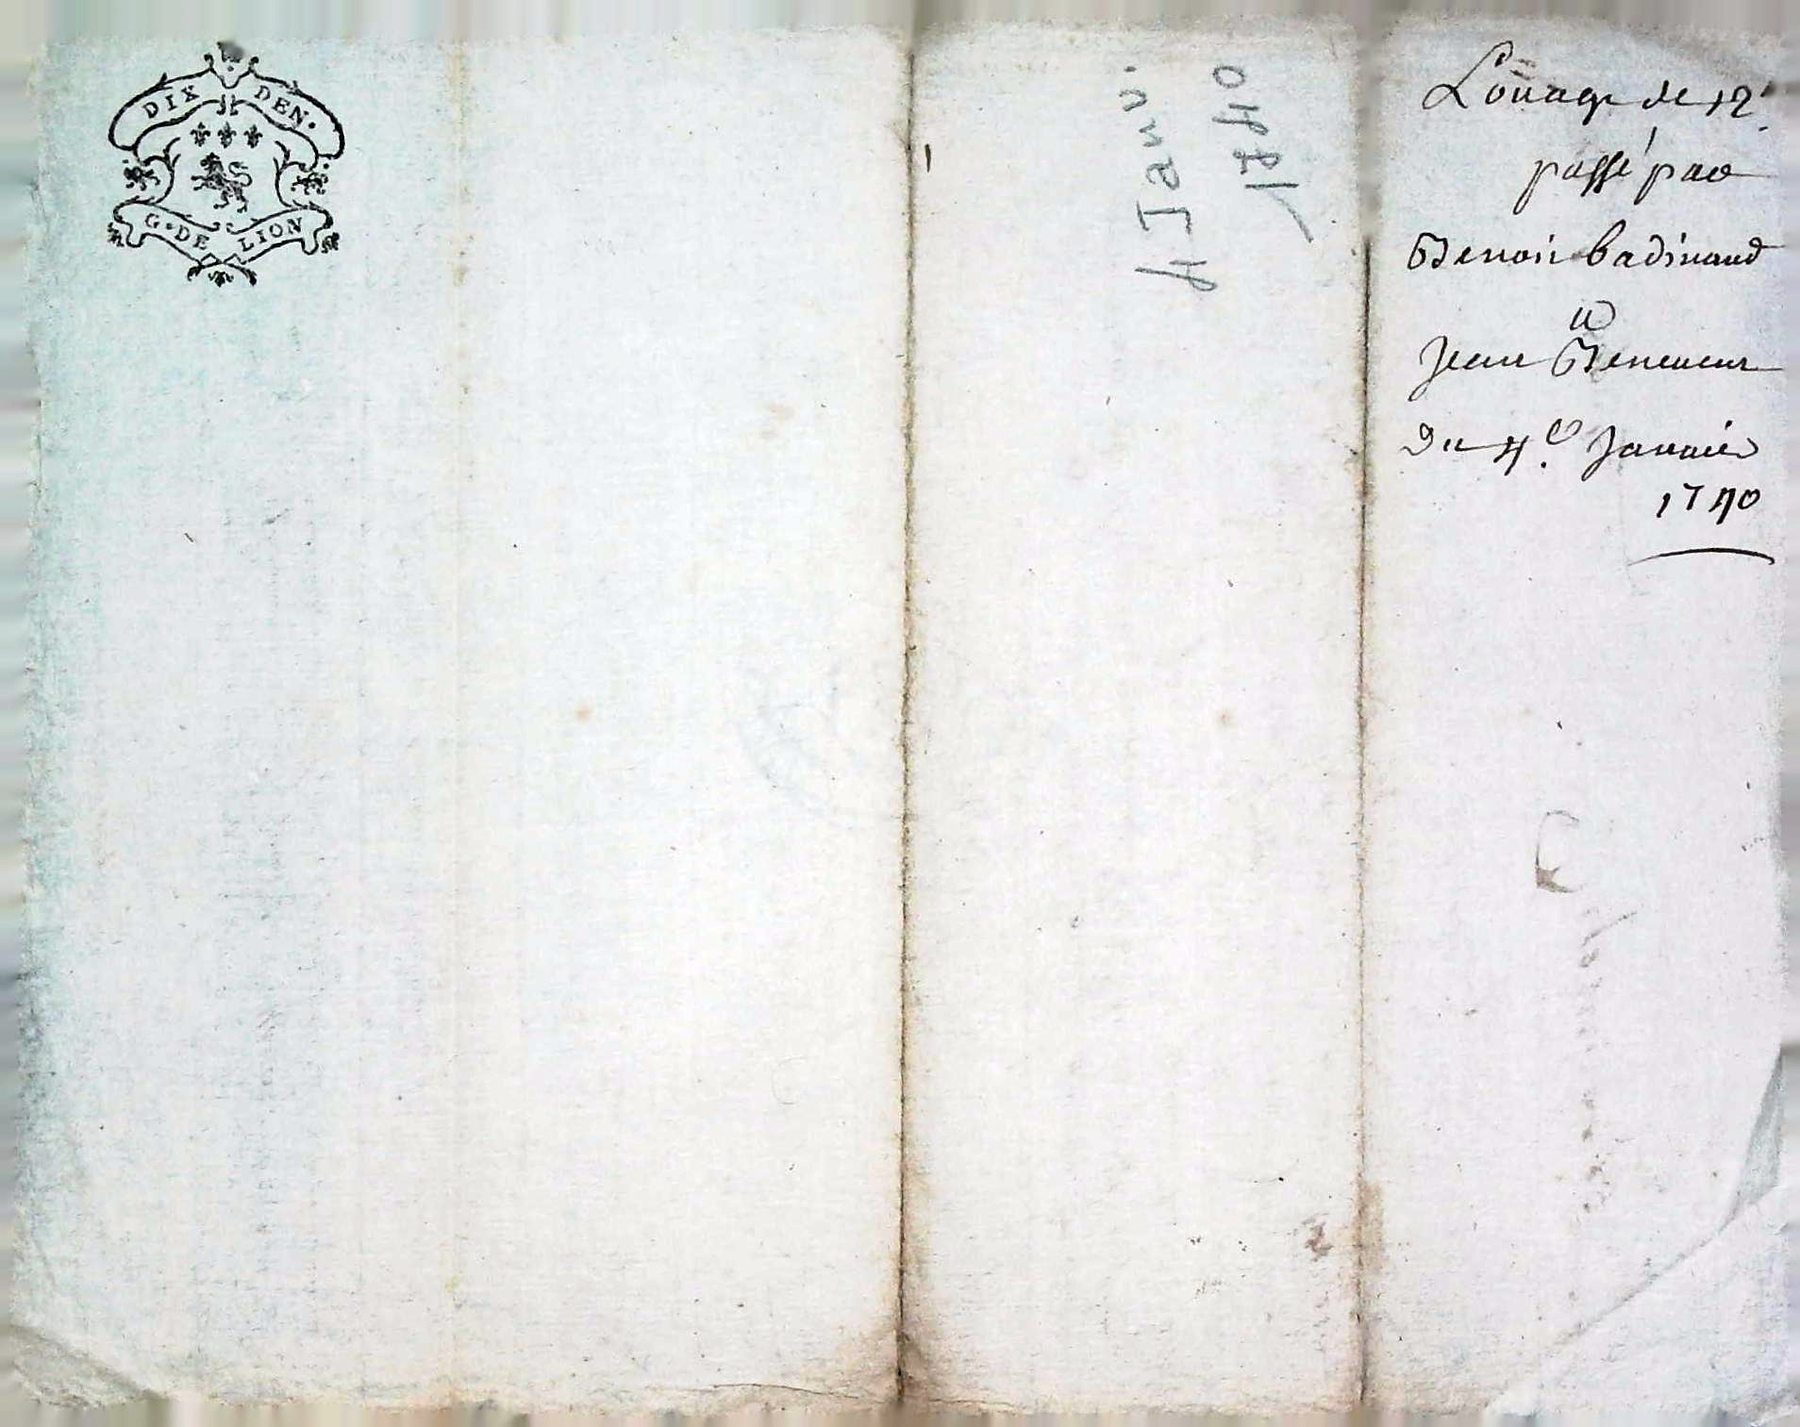 DIX DEN.
G. DE LION
4 Janv.
1740
Loüage de 12#
passé par
Benoit badinand
a
Jean Beneueur
Du 4e. Januier
1740